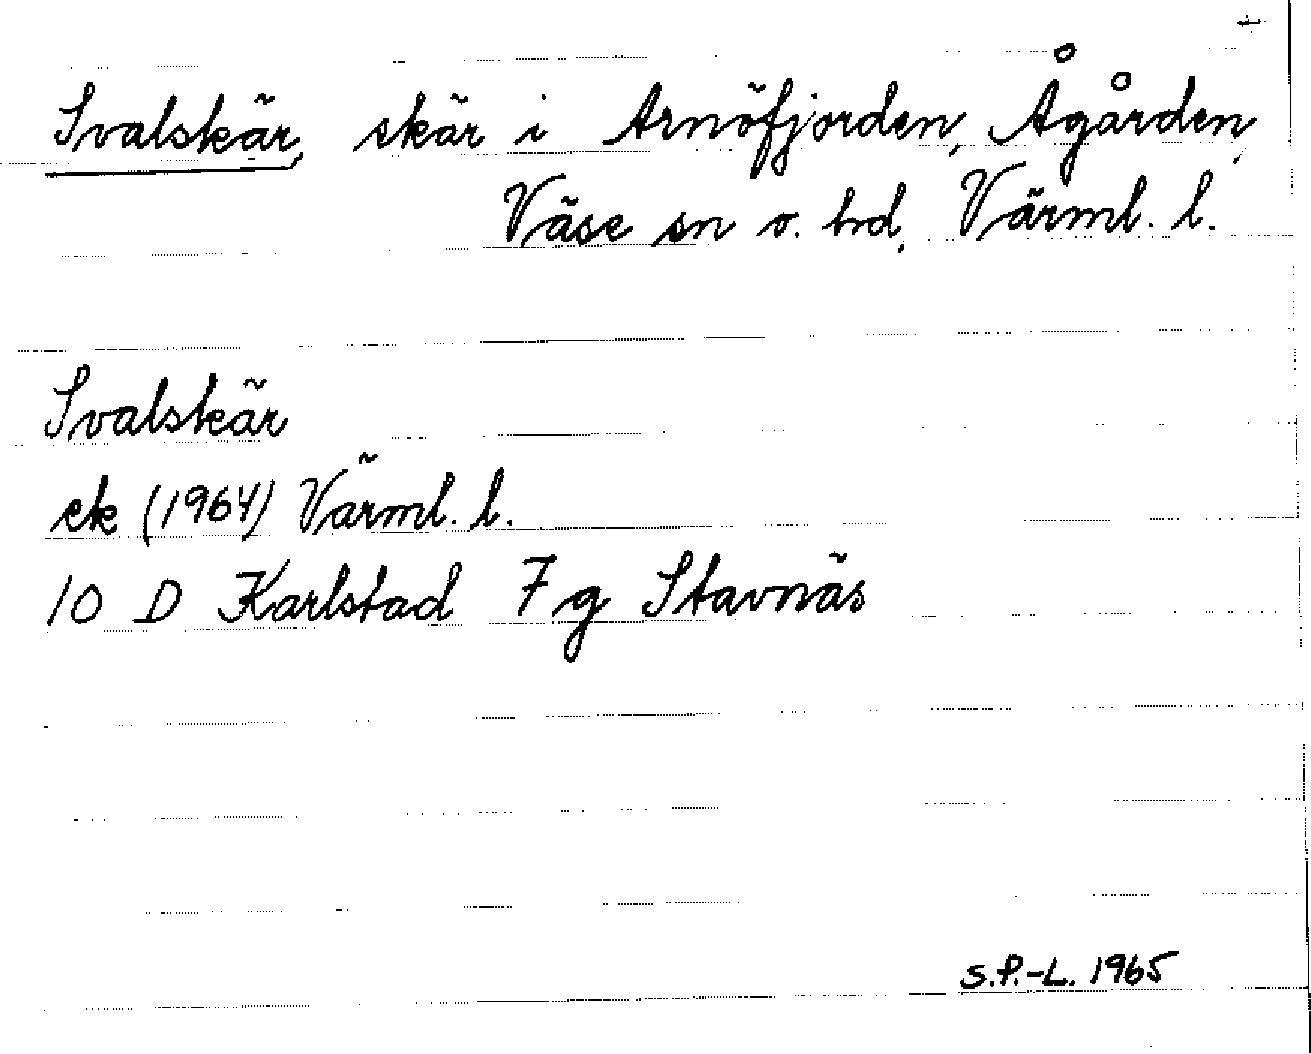 Svalskär, skär i Arnöfjorden, Ågården,
Väse sn o. hd, Värml. l.
Svalskär
ek (1964) Värml. l.
10 D Karlstad 7 g Stavnäs
S.P.-L. 1965